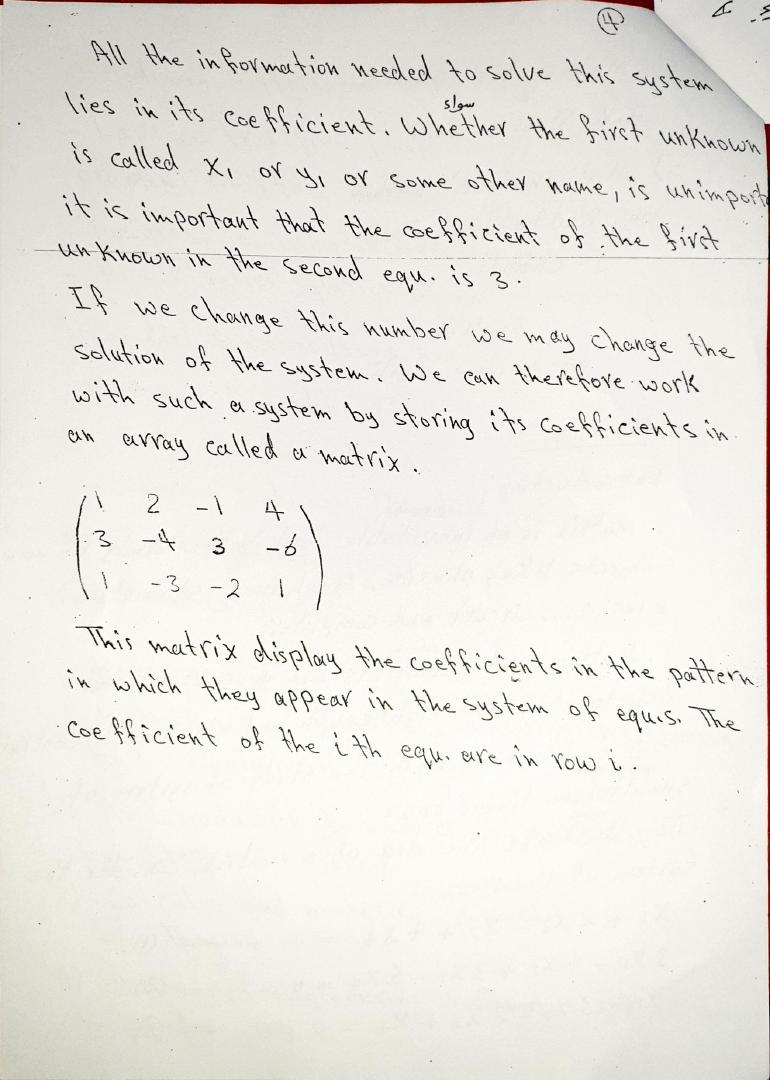 4
All the information needed to solve this system
سواء
lies in its coefficient. Whether the first unknown
is called x₁ or y₁ or some other name, is unimport
it is important that the coefficient of the first
unknown in the second equ. is 3.
If we change this number we may change the
solution of the system. We can therefore work
with such a system by storing its coefficients in
an array called a matrix.
1 2 -1 4
3 -4 3 -6
1 -3 -2 1
This matrix display the coefficients in the pattern
in which they appear in the system of equ.s. The
coefficient of the i th equ. are in row i.